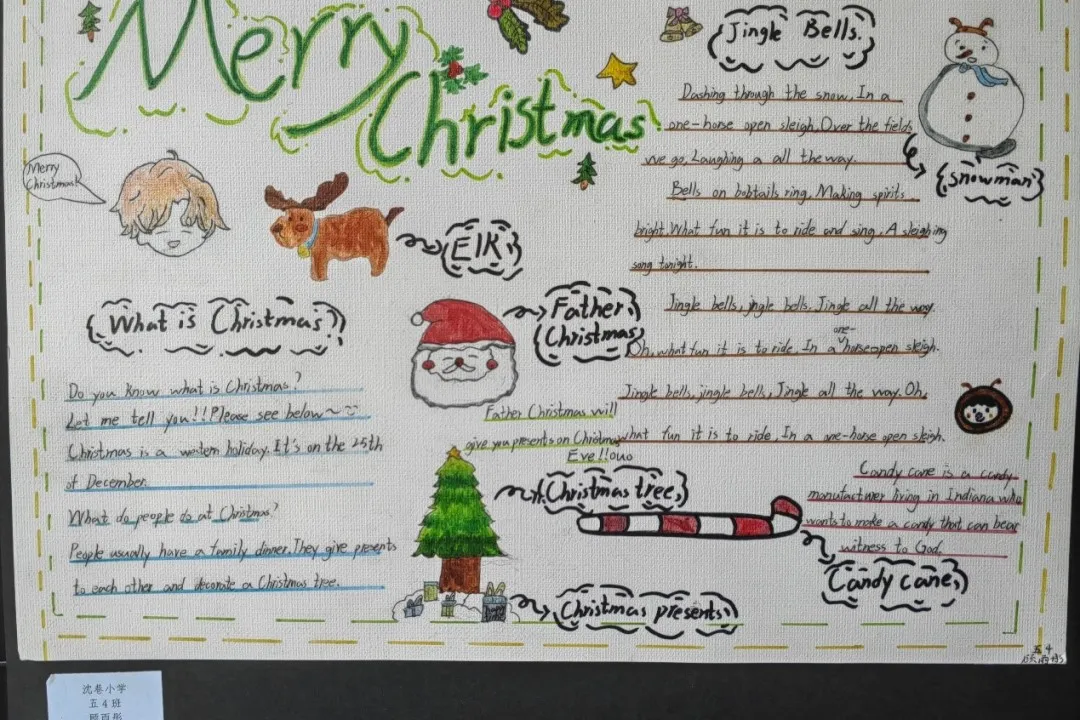 Merry
Christmas
Merry
Christmas!
Elk
What is Christmas?
Do you know what is Christmas?
Let me tell you!!Please see below~
Christmas is a western holiday. It's on the 25th
of December.
What do people do at Christmas?
People usually have a family dinner. They give presents
to each other and decorate a Christmas tree.
Father
Christmas
Father Christmas will
give you presents on Christmas
Eve!!
Christmas tree
Christmas presents
Jingle Bells.
Dashing through the snow, In a
one-horse open sleigh. Over the fields
we go, Laughing a all the way.
Bells on bobtails ring, Making spirits
bright. What fun it is to ride and sing, A sleighing
song tonight.
Jingle bells, jingle bells, Jingle all the way
Oh, what fun it is to ride, In a one-horse open sleigh.
Jingle bells, jingle bells, Jingle all the way. Oh,
what fun it is to ride, In a one-horse open sleigh.
snowman
Candy cane is a candy
manufacturer living in Indiana who
wants to make a candy that can bear
witness to God.
Candy cane
五4
沈巷小学
五4班